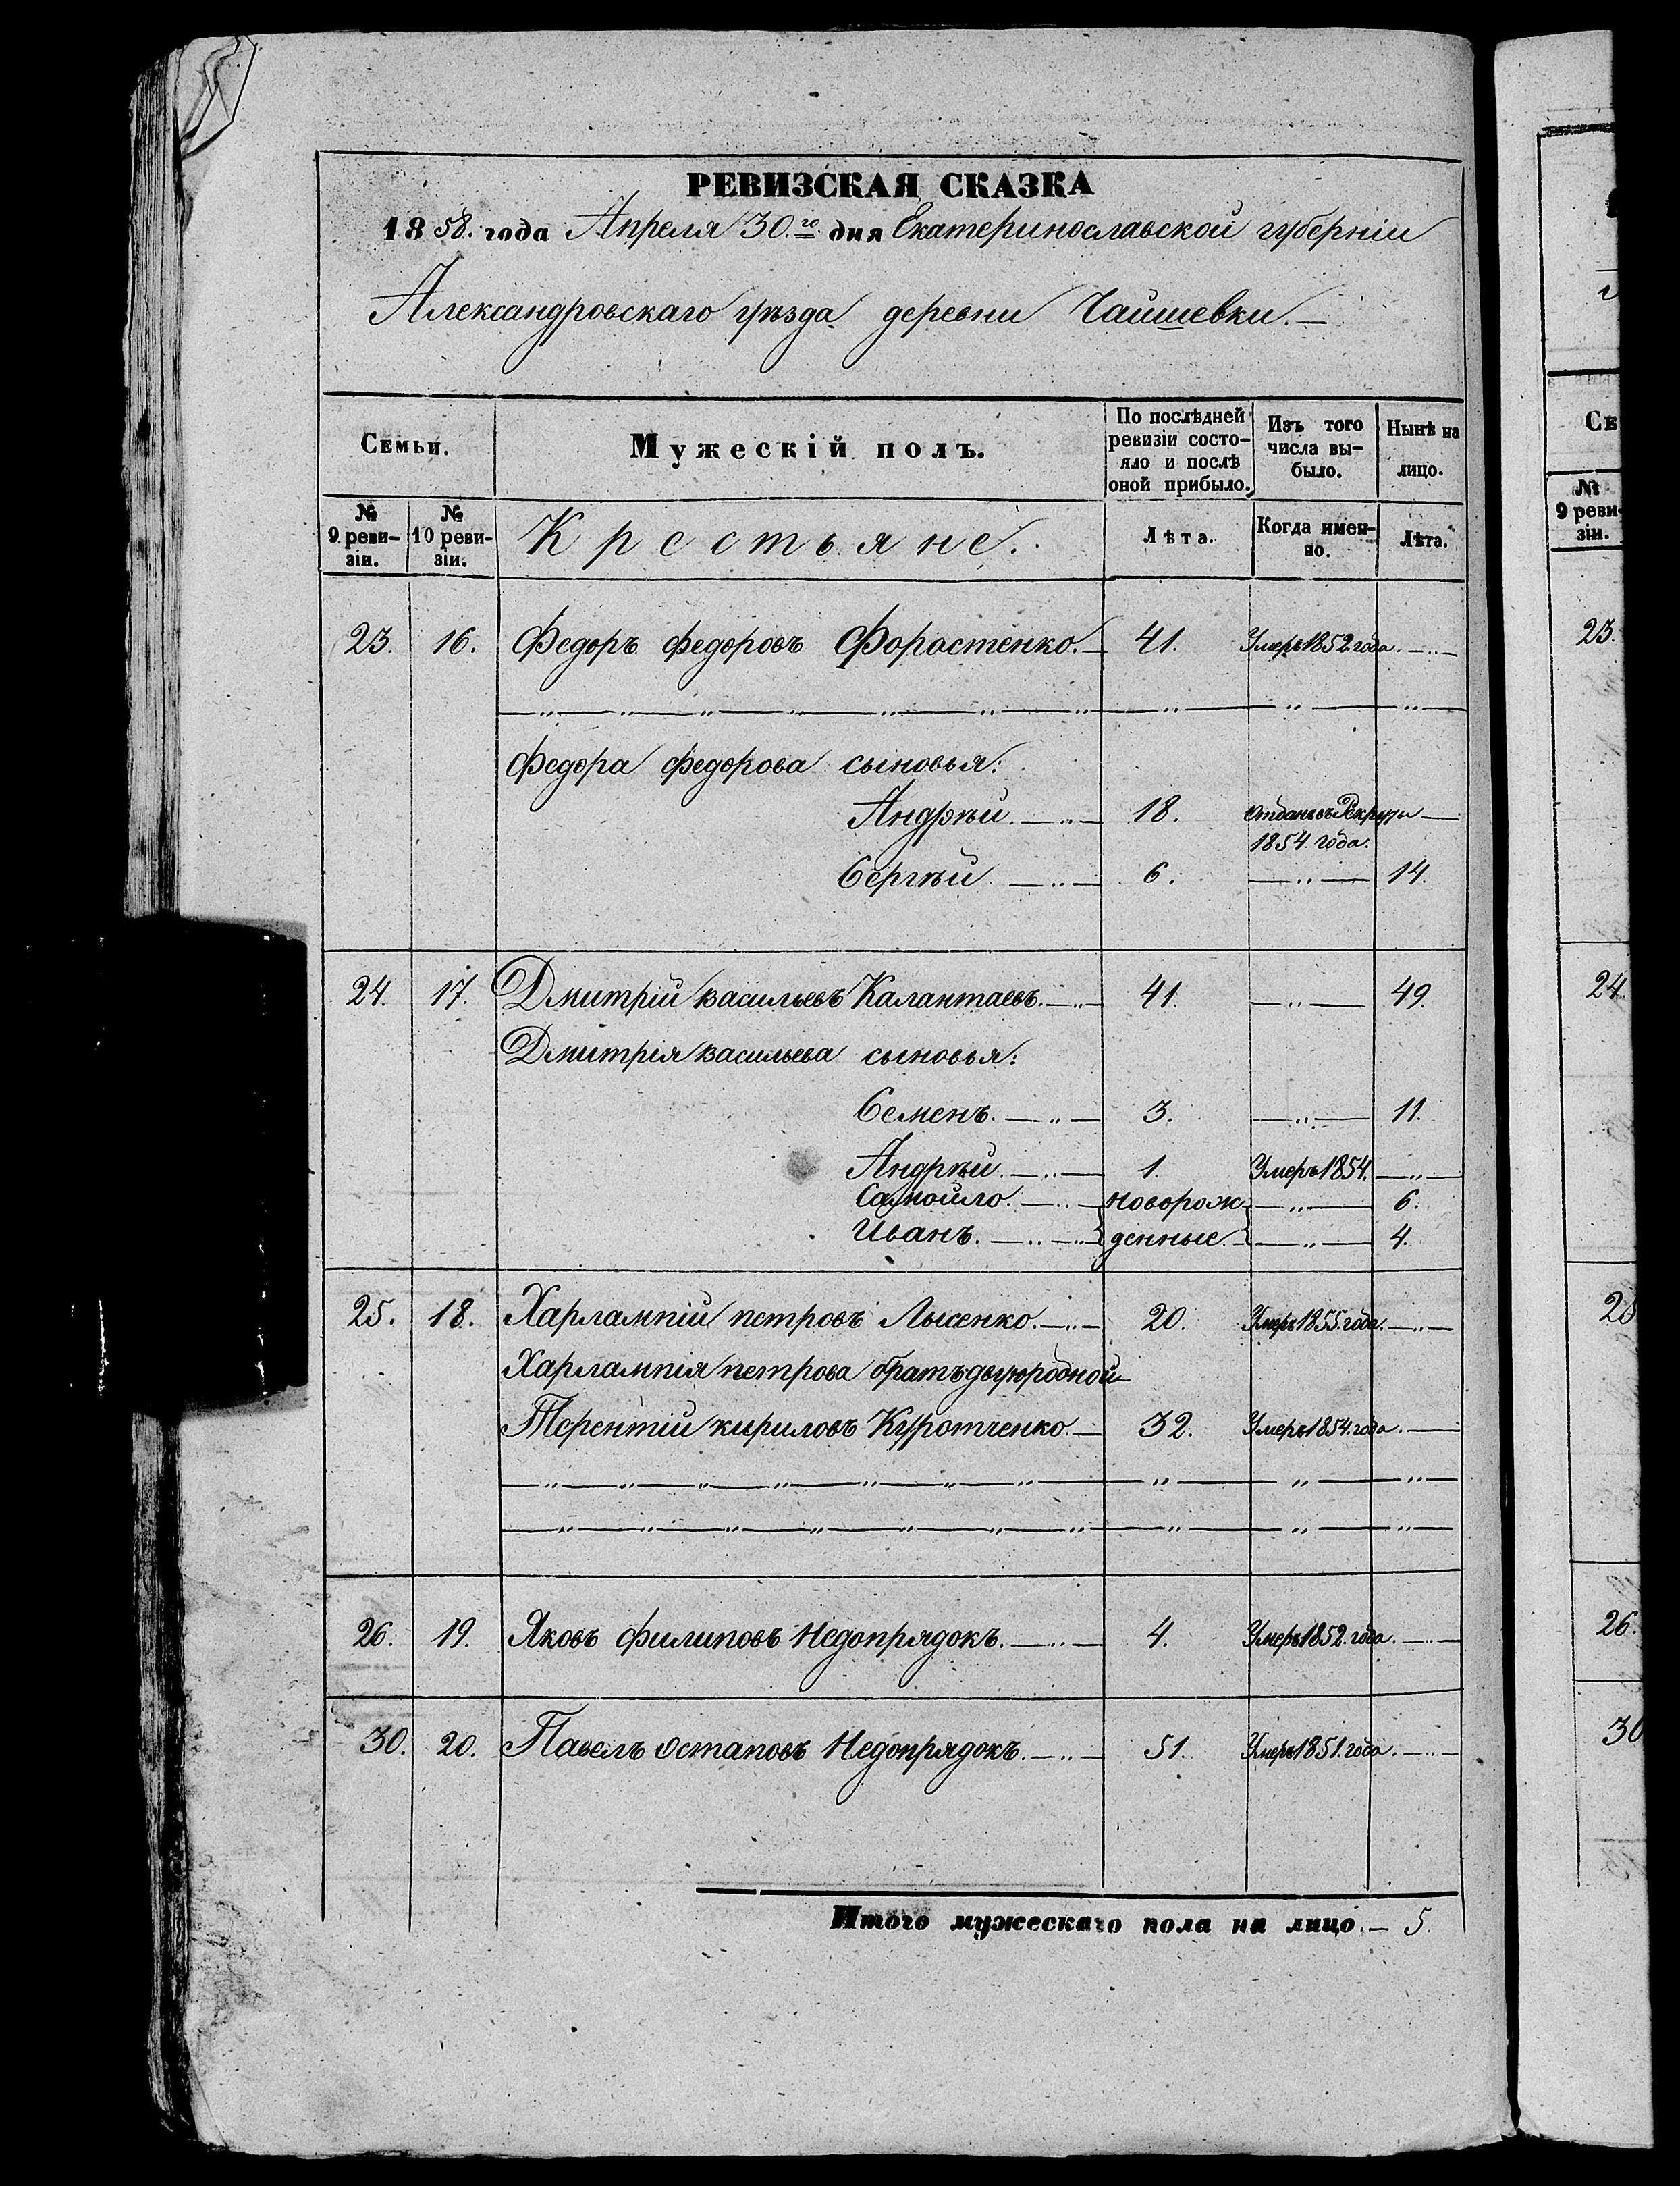 РЕВИЗСКАЯ СКАЗКА
1858. года Апреля 30.го дня Екатеринославской губерніи
Александровскаго уѣзда деревни Чаишевки.—
Семьи.
Мужескій полъ.
По послѣдней ревизіи состо-яло и послѣ оной прибыло.
Изъ того числа вы-было.
Нынѣ на лицо.
№ 9 реви-зіи.
№ 10 реви-зіи.
Крестьяне.
Лѣта.
Когда имен-но.
Лѣта.
23. 16. Федоръ федоровъ Форостенко.— 41. Умеръ 1852 года. —„—
Федора федорова сыновья:
Андрѣй. —„— 18. отданъ въ Рекруты —
1854. года.
Сергѣй. —„— 6. —„— 14.
24. 17. Дмитрій васильевъ Калантаевъ. —„— 41. —„— 49.
Дмитрія васильева сыновья:
Семенъ. —„— 3. —„— 11.
Андрѣй. —„— 1. Умеръ 1854. —„—
Самойло. —„— новорож- —„— 6.
Иванъ. —„— денные. —„— 4.
25. 18. Харлампій петровъ Лысенко. —„— 20. Умеръ 1855. года. —„—
Харлампія петрова братъ двуюродной
Терентій кириловъ Куротченко.— 32. Умеръ 1854. года. —
26. 19. Яковъ филиповъ Недопрядокъ. —„— 4. Умеръ 1852. года. —„—
30. 20. Павелъ остаповъ Недопрядокъ. —„— 51. Умеръ 1851. года. —„—
Итого мужескаго пола на лицо.— 5.
Се
№
9 реви-
зіи.
23.
24.
25
26.
30